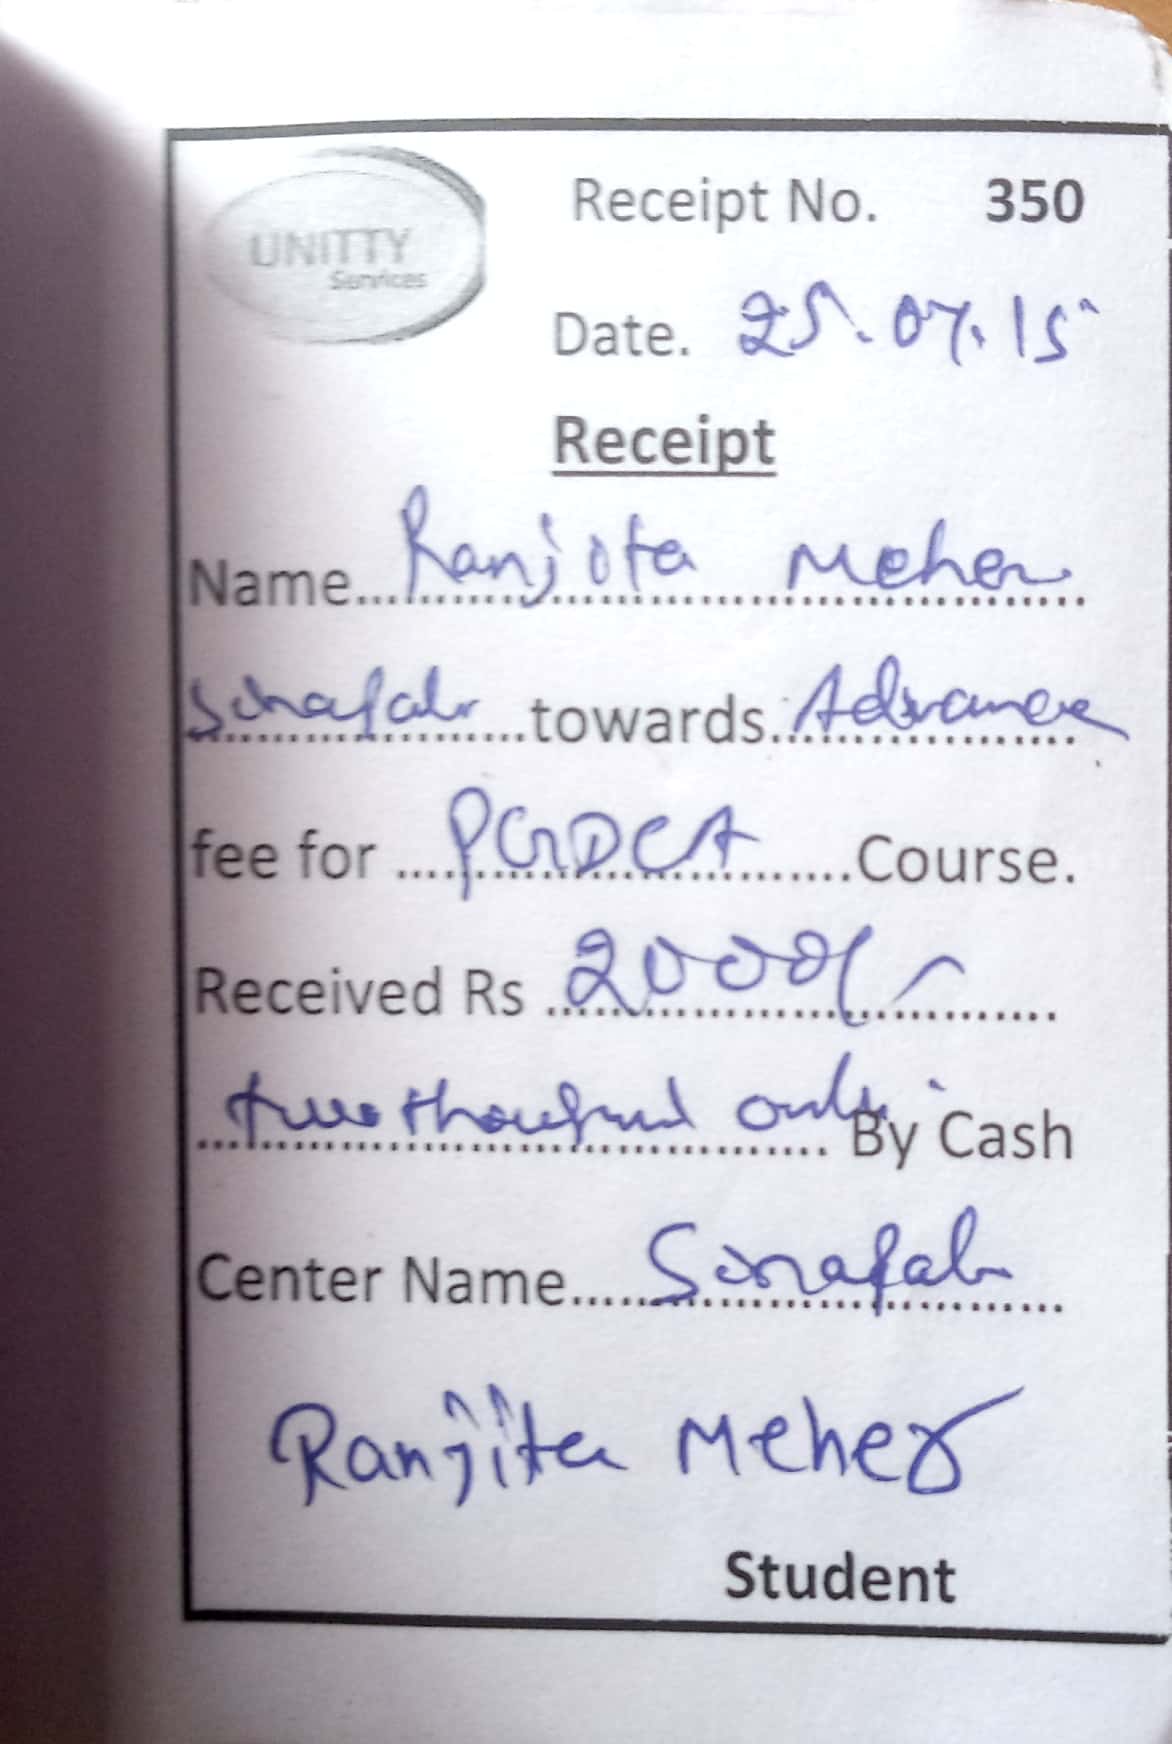 UNITTY
Services
Receipt No. 350
Date. 25.07.15
Receipt
Name Ranjita Meher
Sinapali towards Advance
fee for PGDCA Course.
Received Rs 2000/-
two thousand only By Cash
Center Name Sinapali
Ranjita Meher
Student